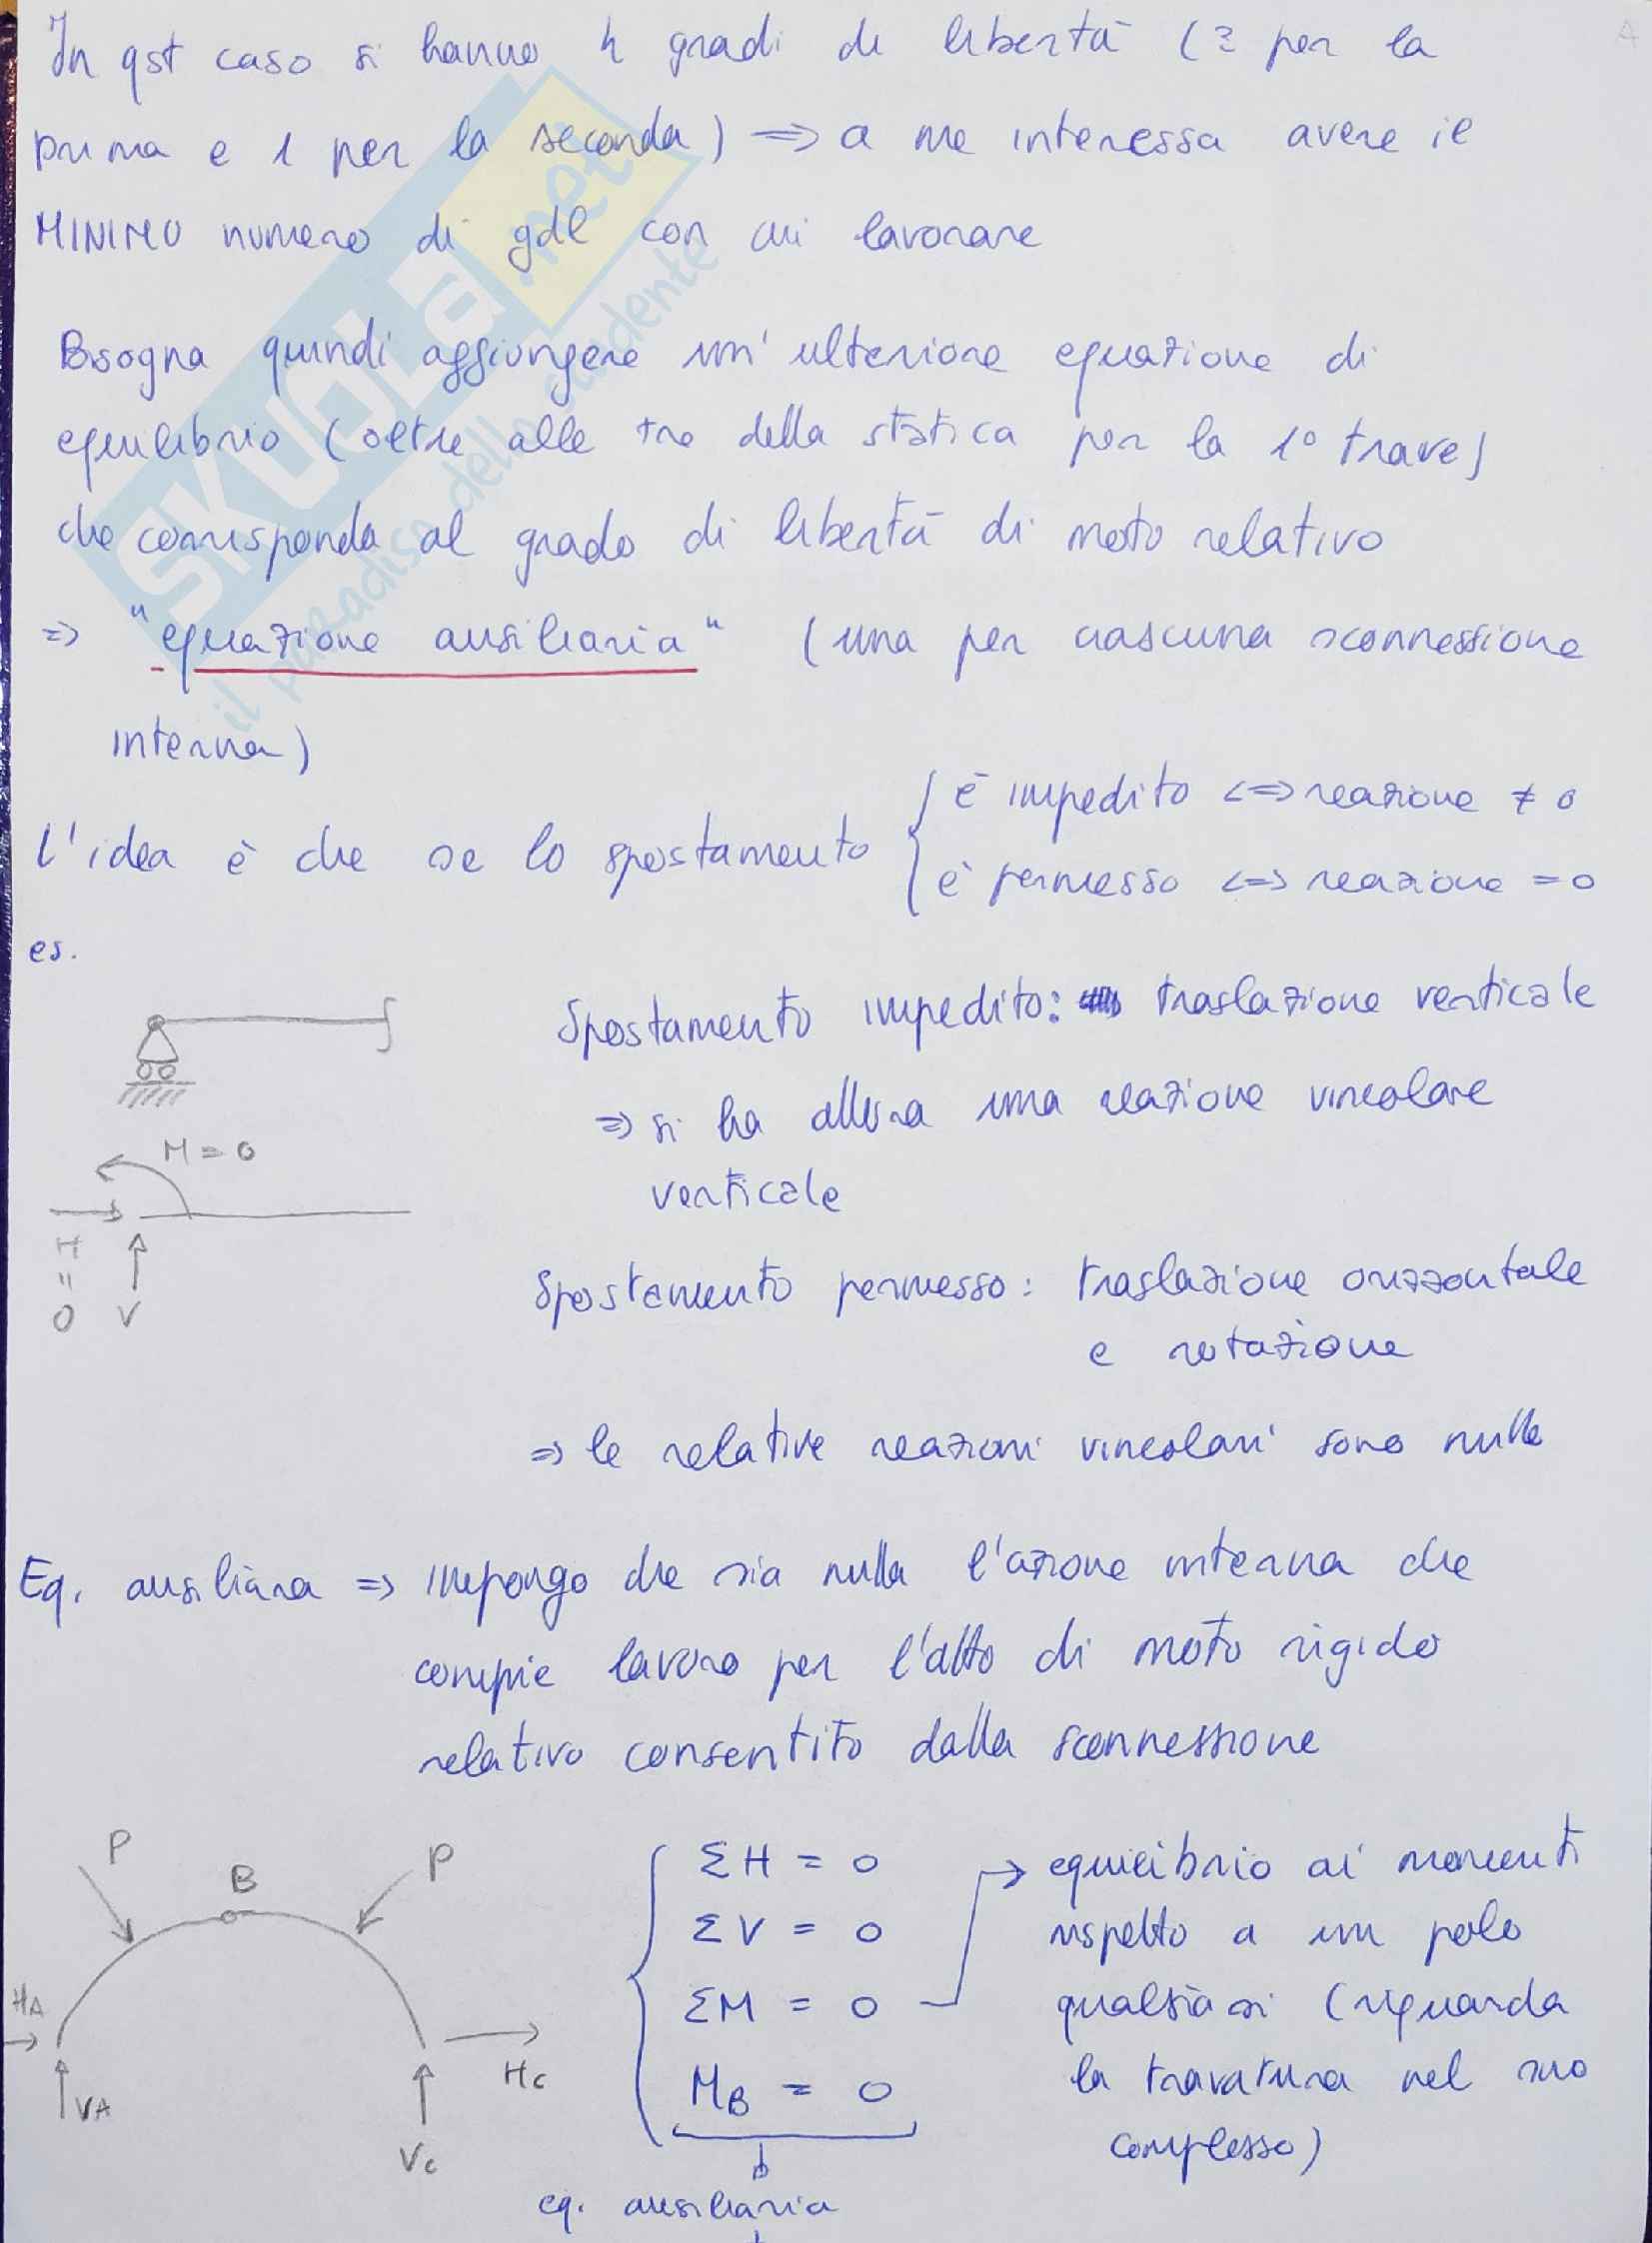 In qst caso si hanno 4 gradi di libertà (3 per la
prima e 1 per la seconda) => a me interessa avere il
MINIMO numero di gdl con cui lavorare
Bisogna quindi aggiungere un'ulteriore equazione di
equilibrio (oltre alle tre della statica per la 1° trave)
che corrisponda al grado di libertà di moto relativo
=> "equazione ausiliaria" (una per ciascuna sconnessione
interna)
L'idea è che se lo spostamento { è impedito <=> reazione ≠ 0
è permesso <=> reazione = 0
es.
Spostamento impedito: traslazione verticale
=> si ha allora una reazione vincolare
verticale
M = 0
H = 0
V
Spostamento permesso: traslazione orizzontale
e rotazione
=> le relative reazioni vincolari sono nulle
Eq. ausiliaria => impongo che sia nulla l'azione interna che
compie lavoro per l'atto di moto rigido
relativo consentito dalla sconnessione
P
B
P
HA
VA
HC
VC
ΣH = 0
ΣV = 0
ΣM = 0
MB = 0
eq. ausiliaria
→ equilibrio ai momenti
rispetto a un polo
qualsiasi (riguarda
la travatura nel suo
complesso)
SKUOLA.net
il paradiso dello studente